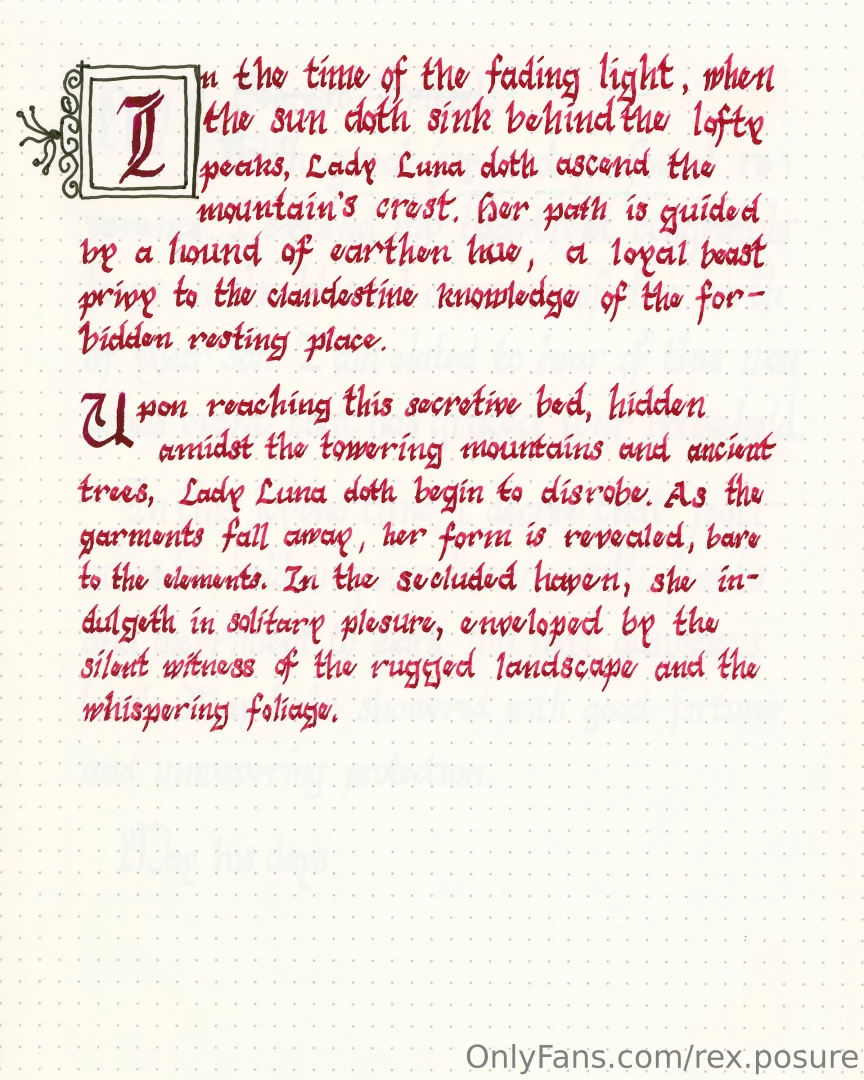 In the time of the fading light, when
the sun doth sink behind the lofty
peaks, Lady Luna doth ascend the
mountain's crest. Her path is guided
by a hound of earthen hue, a loyal beast
privy to the clandestine knowledge of the for-
bidden resting place.
Upon reaching this secretive bed, hidden
amidst the towering mountains and ancient
trees, Lady Luna doth begin to disrobe. As the
garments fall away, her form is revealed, bare
to the elements. In the secluded haven, she in-
dulgeth in solitary plesure, enveloped by the
silent witness of the rugged landscape and the
whispering foliage.
of your son. I am elated to hear of this
showered with good fortune
and unwavering protection.
May his days
OnlyFans.com/rex.posure